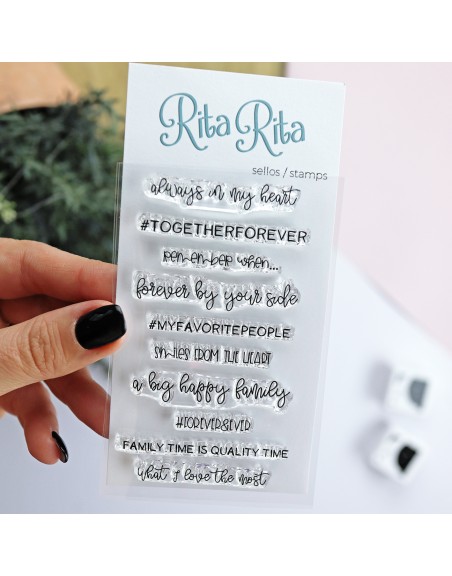 Rita Rita
sellos / stamps
always in my heart
#TOGETHERFOREVER
remember when...
forever by your side
#MYFAVORITEPEOPLE
SMILES FROM THE HEART
a big happy family
#FOREVER&EVER
FAMILY TIME IS QUALITY TIME
what I love the most